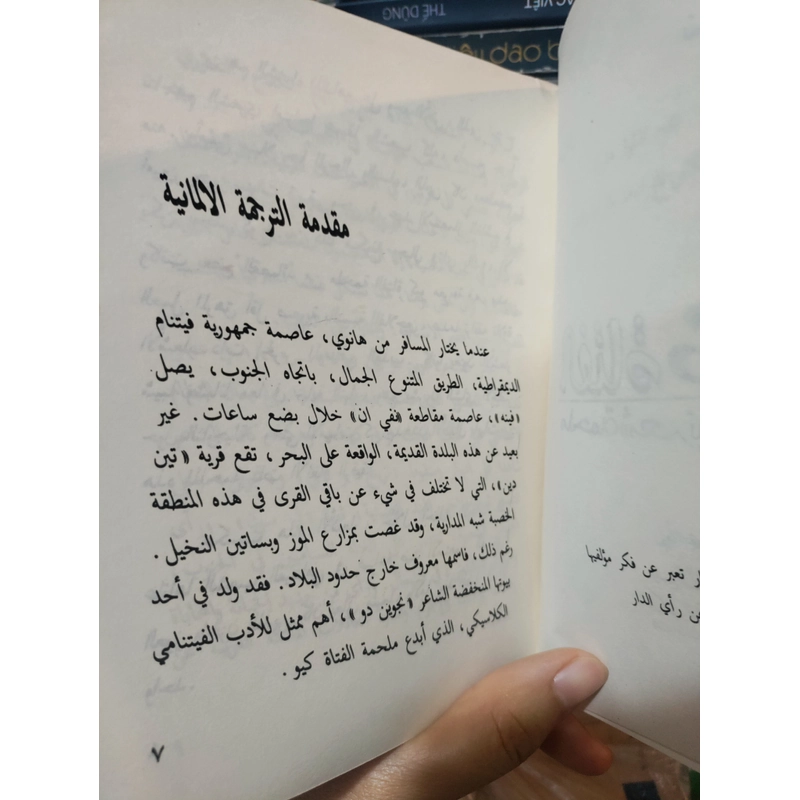 مقدمة الترجمة الالمانية
عندما يختار المسافر من هانوي، عاصمة جمهورية فيتنام
الديمقراطية، الطريق المتنوع الجمال، باتجاه الجنوب، يصل
«فينه»، عاصمة مقاطعة «نفي ان» خلال بضع ساعات. غير
بعيد عن هذه البلدة القديمة، الواقعة على البحر، تقع قرية «تين
دين»، التي لا تختلف في شيء عن باقي القرى في هذه المنطقة
الخصبة شبه المدارية، وقد غصت بمزارع الموز وبساتين النخيل.
رغم ذلك، فاسمها معروف خارج حدود البلاد. فقد ولد في أحد
بيوتها المنخفضة الشاعر «نجوين دو»، أهم ممثل للأدب الفيتنامي
الكلاسيكي، الذي أبدع ملحمة الفتاة كيو.
٧
تعبر عن فكر مؤلفيها
رأي الدار
THẾ DŨNG
VIỆT
dao